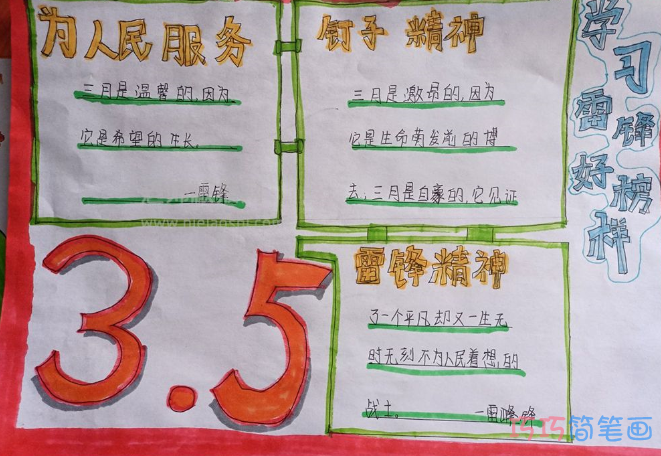 为人民服务
三月是温馨的,因为
它是希望的生长。
—雷锋
钉子精神
三月是激昂的,因为
它是生命萌发前的搏
去,三月是自豪的,它见证
雷锋精神
了一个平凡却又一生无
时无刻不为人民着想的
战士。 —雷锋
3.5
学习雷锋好榜样
巧巧简笔画